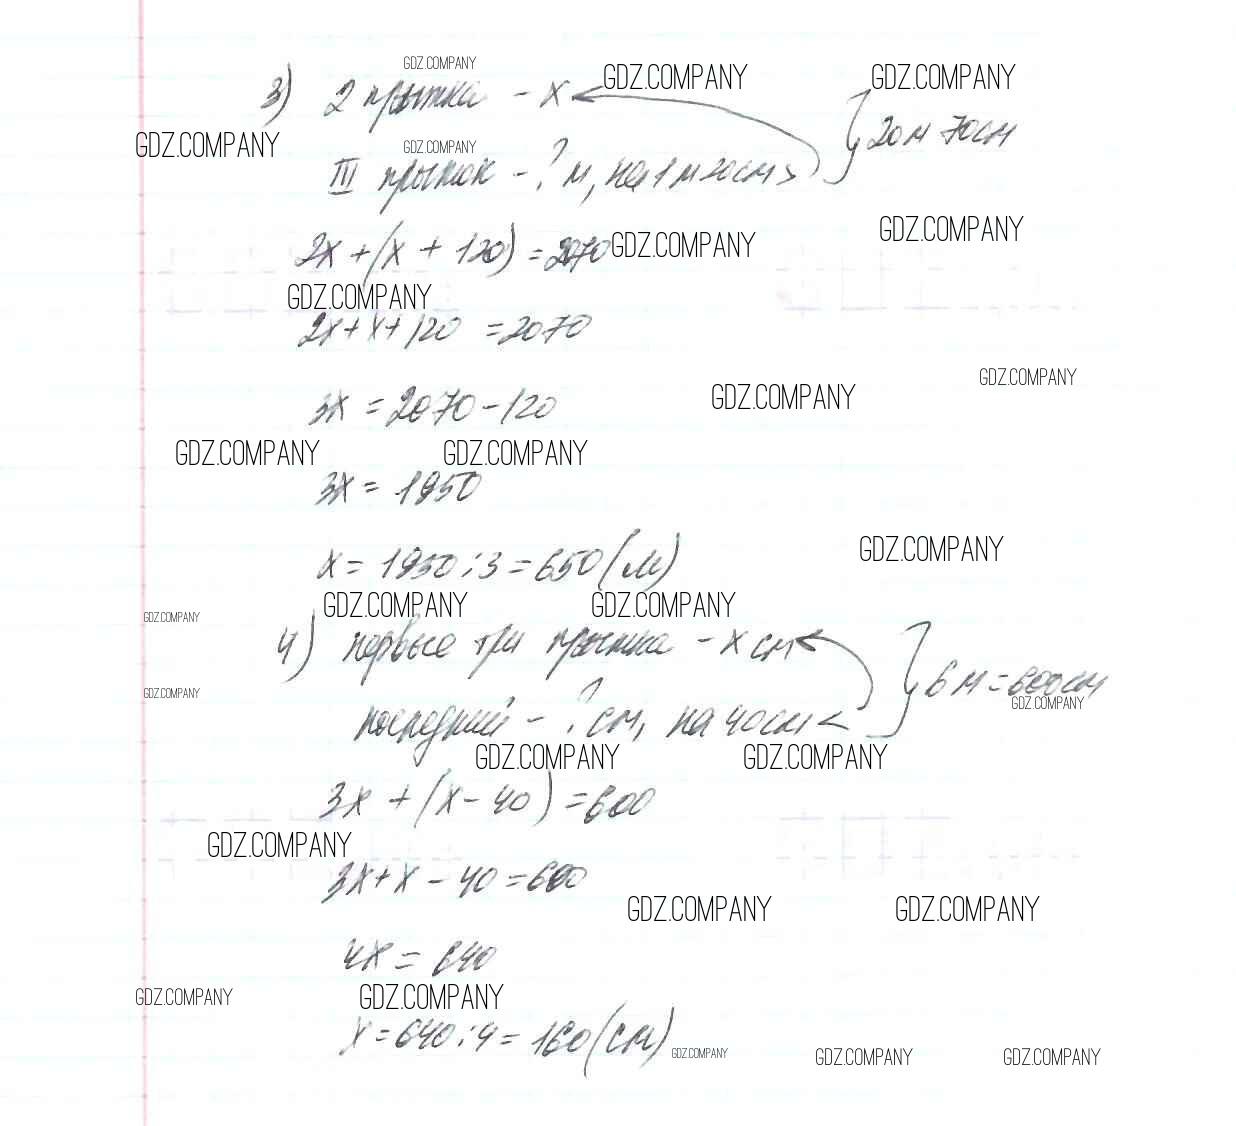 GDZ.COMPANY
3) 2 прыжка - х GDZ.COMPANY GDZ.COMPANY
GDZ.COMPANY GDZ.COMPANY } 20м 70см
III прыжок - ? м, на 1 м 20см >
2х + (х + 120) = 2070 GDZ.COMPANY GDZ.COMPANY
GDZ.COMPANY
2х + х + 120 = 2070
GDZ.COMPANY
3х = 2070 - 120 GDZ.COMPANY
GDZ.COMPANY GDZ.COMPANY
3х = 1950
х = 1950 : 3 = 650 (м) GDZ.COMPANY
GDZ.COMPANY GDZ.COMPANY GDZ.COMPANY
4) первые три прыжка - х см
GDZ.COMPANY } 6 м = 600см
GDZ.COMPANY
последний - ? см, на 40см <
GDZ.COMPANY GDZ.COMPANY
3х + (х - 40) = 600
GDZ.COMPANY
3х + х - 40 = 600
GDZ.COMPANY GDZ.COMPANY
4х = 640
GDZ.COMPANY GDZ.COMPANY
х = 640 : 4 = 160 (см)
GDZ.COMPANY GDZ.COMPANY GDZ.COMPANY